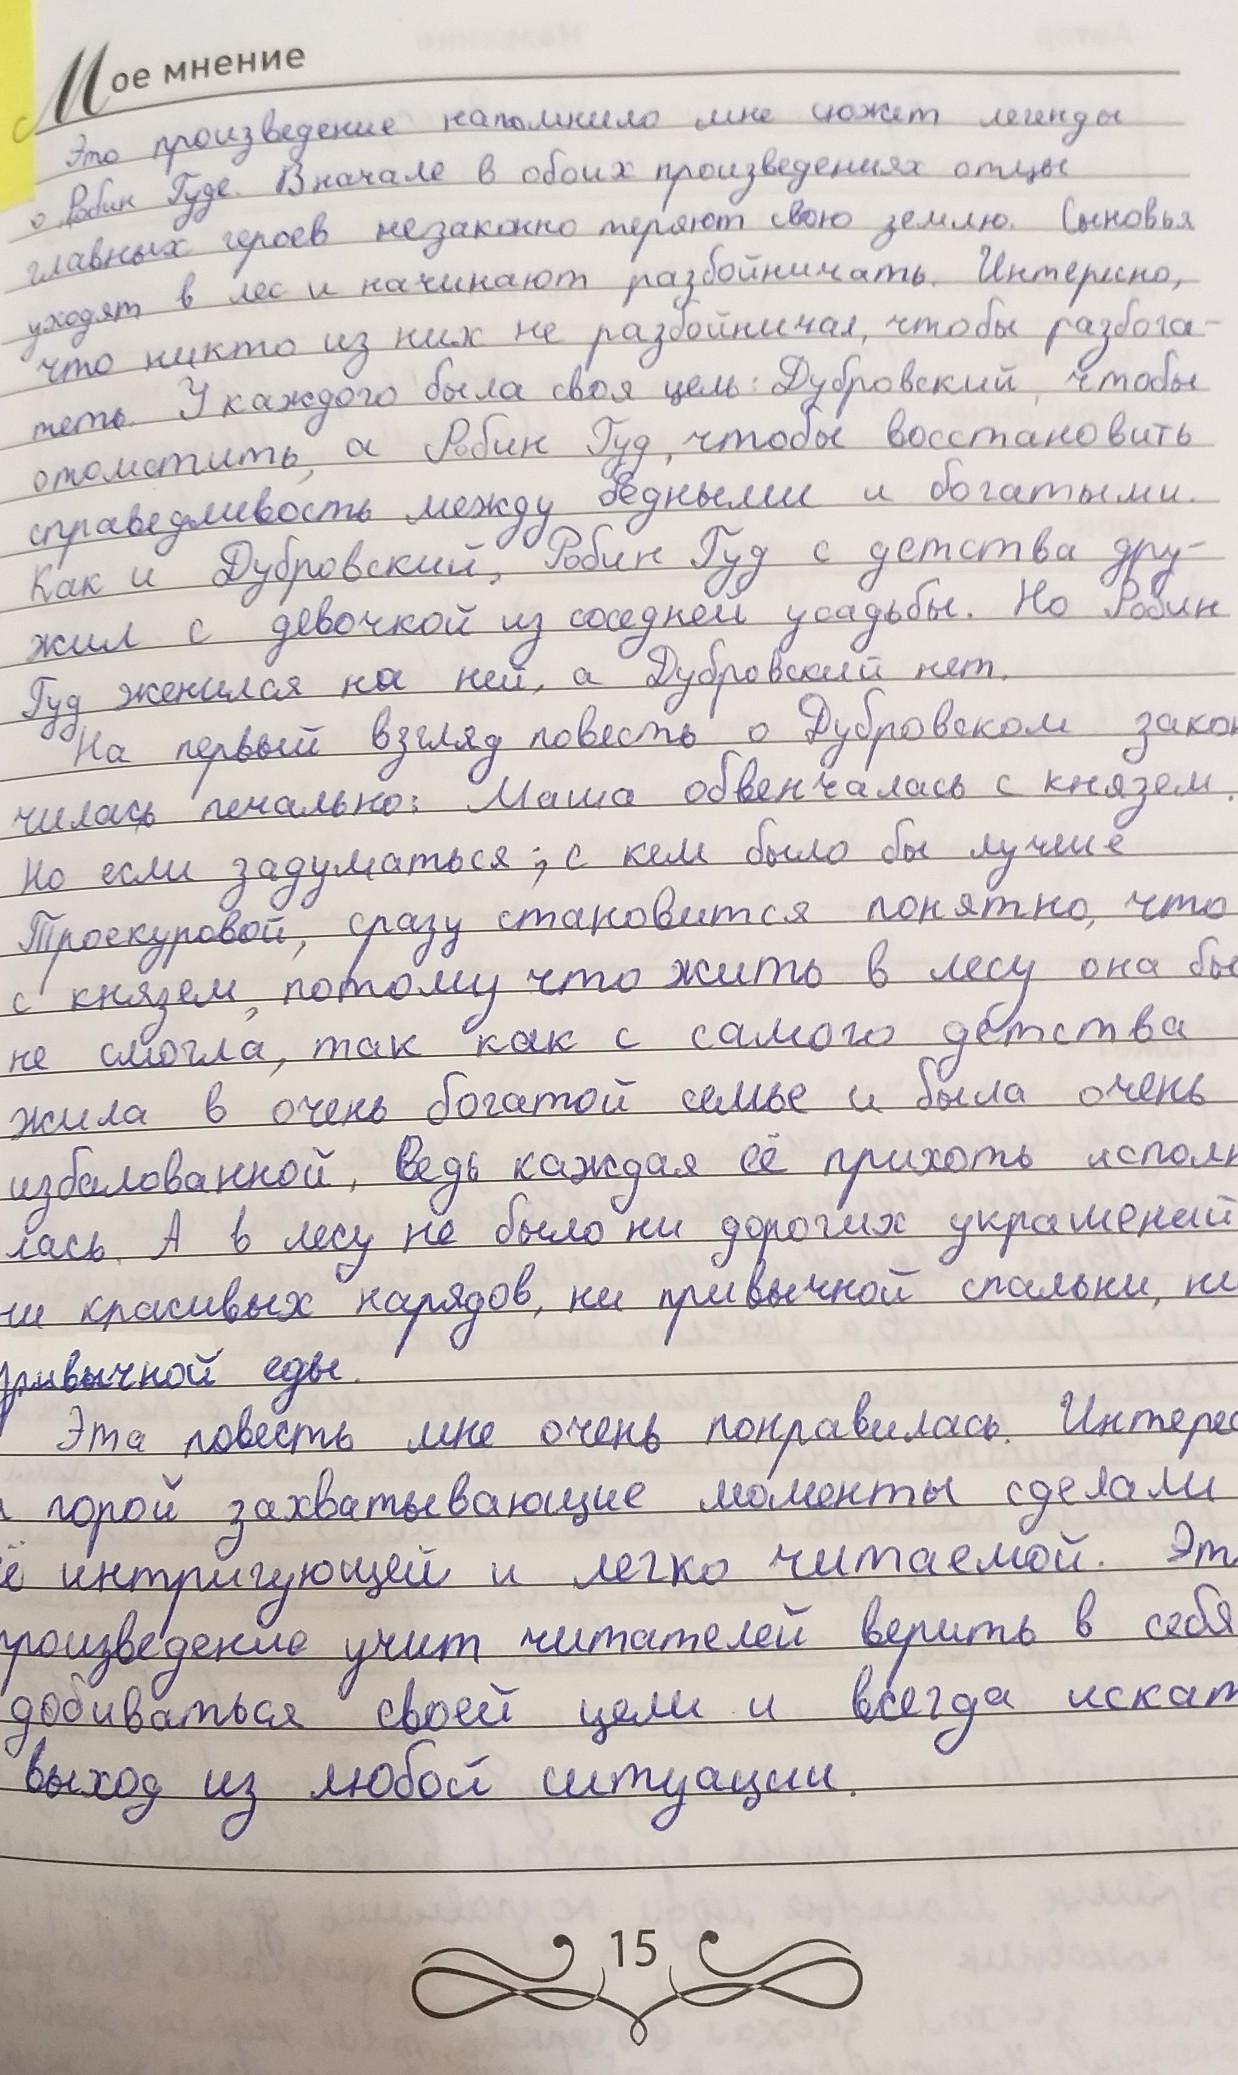 Мое мнение
Это произведение напомнило мне сюжет легенды
о Робин Гуде. Вначале в обоих произведениях отцы
главных героев незаконно теряют свою землю. Сыновья
уходят в лес и начинают разбойничать. Интересно,
что никто из них не разбойничал, чтобы разбога-
теть. У каждого была своя цель: Дубровский, чтобы
отомстить, а Робин Гуд, чтобы восстановить
справедливость между бедными и богатыми.
Как и Дубровский, Робин Гуд с детства дру-
жил с девочкой из соседней усадьбы. Но Робин
Гуд женился на ней, а Дубровский нет.
На первый взгляд повесть о Дубровском закон
чилась печально: Маша обвенчалась с князем.
Но если задуматься, с кем было бы лучше
Троекуровой, сразу становится понятно, что
с князем, потому что жить в лесу она бы
не смогла, так как с самого детства
жила в очень богатой семье и была очень
избалованной, ведь каждая её прихоть исполн
лась. А в лесу не было ни дорогих украшений
ни красивых нарядов, ни привычной спальни, ни
привычной еды.
Эта повесть мне очень понравилась. Интерес
порой захватывающие моменты сделали
ё интригующей и легко читаемой. Эт
произведение учит читателей верить в себя
добиваться своей цели и всегда искат
выход из любой ситуации.
15